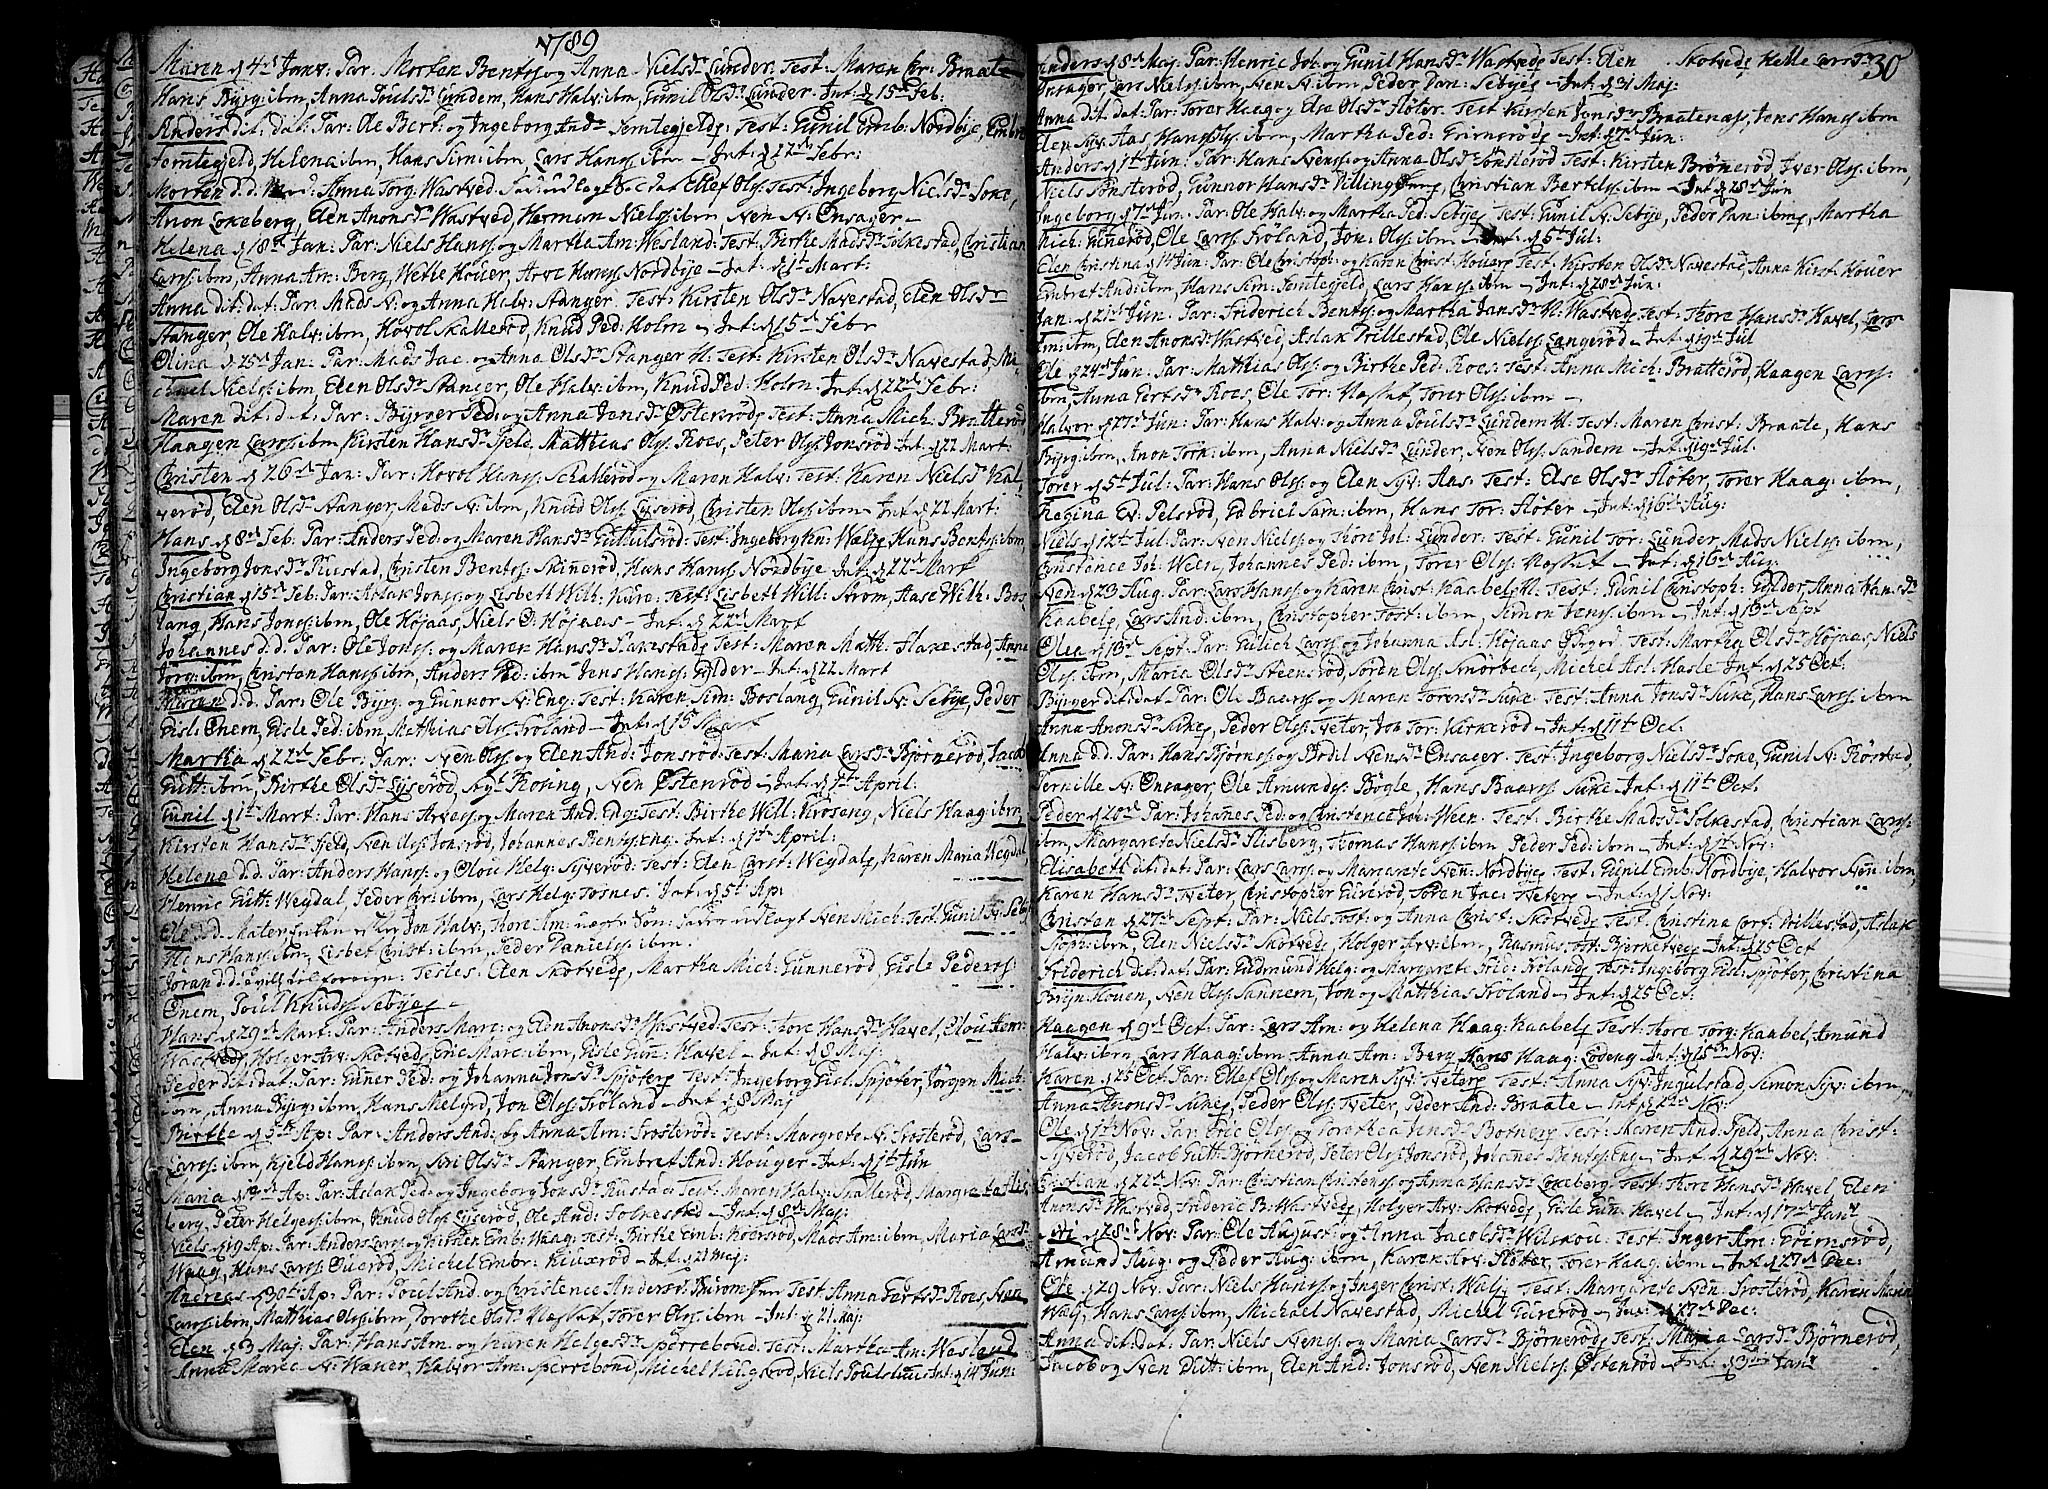 1789
Maren d 4de Janv: Par: Morten Bentss og Anna Nielsdr Lunder. Test: Maren Chr: Braate
Hans Byrg: ibm, Anna Poulsdr Lundem, Hans Halv: ibm, Gunil Olsdr Lunder. Int: d 15de Feb.
Anders dit: dat: Par: Ole Bert: og Ingeborg Andr Semtegjeld, Test: Gunil Emb: Nordbye, Embr
Semtegjeld, Helena ibm, Hans Sim: ibm, Lars Hanss ibm – Int: d 22de Febr:
Morten d.d. Anna Torg: Wastved. udlagt Ellef Olss. Test: Ingeborg Nielsdr Sone,
Anon Lokeberg, Elen Anonsdr Wastved, Herman Nielss ibm Nen N: Onsager –
Helena d 18de Jan: Par: Niels Hanss og Martha Am: Wesland: Test: Birthe Madsdr Solkestad, Christian
Larss ibm, Anna Am: Berg, Wetle Houer, Arve Hanss Nordbye – Int: d 1te Mart:
Anna dit: dat: Par: Mads N: og Anna Halv: Stanger. Test: Kirsten Olsdr Navestad, Elen Olsdr
Stanger, Ole Halv: ibm, Hovol Skallerød, Knud Ped: Holm – Int: d 15de Febr
Olina d 25de Jan: Par: Mads Jac: og Anna Olsdr Stanger N: Test: Kirsten Olsdr Navestad, Mi
chael Nielss ibm, Elen Olsdr Stanger, Ole Halv: ibm, Knud Ped: Holm. Int: d 22de Febr:
Maren dit: dat: Par: Byrger Ped: og Anna Jonsdr Østenrød, Test: Anna Mich: Bratterød
Haagen Larss ibm Kirsten Hansdr Fjeld, Matthias Olss Roes, Peter Olss Jonsrød Int: d 22 Mart:
Christen d 26de Jan: Par: Hovol Hanss Schallerød og Maren Halv: Test: Karen Nielsdr Kal,
nerød, Elen Olsdr Stanger, Mads N: ibm, Knud Olss Lyserød, Christen Olss ibm – Int d 22 Mart:
Hans d 8de Feb: Par: Anders Ped: og Maren Hansdr Guttulsrød: Test: Ingeborg Kn: Wæle, Hans Bentss ibm,
Ingeborg Jonsdr Rustad, Christen Bentss Skinerød, Hans Hanss Nordbye Int: d 22de Mart
Christian d 15de Feb: Par: Aslak Jonss og Lisbeth Will: Kure: Test: Lisbeth Will: Strom, Aase Wilh: Bos
lang, Hans Jonss ibm, Ole Højaas, Niels O: Højaas – Int: d 22de Mart
Johannes d.d. Par: Ole Jonss og Maren Hansdr Flaxestad, Test: Maren Matth. Flaxestad, Anne
Jorg: ibm, Christen Hanss ibm, Anders Ped: ibm Jens Hanss Gylder – Int: d 22 Mart
Maren d.d. Par: Ole Byrg: og Gunnor N: Eng: Test: Karen Sim: Boslang, Gunil N: Sebye, Peder
Gisl: Onem, Gisle Ped: ibm, Mathias Frøland – Int: d 15de Mart
Martha d 22de Febr: Par: Nen Olss og Elen And: Jonsrød: Test: Maria Larsdr Bjørnerød, Jacob
Gutt: ibm, Birthe Olsdr Lyserød, Kosing, Nen Østenrød – Int: d 1te April:
Gunil d 1te Mart: Par: Hans Arvess og Maren And: Eng: Test: Birthe Will: Kroseng, Niels Haag: ibm,
Kirsten Hansdr Fjeld, Nen Olss Jonsrød, Johannes Bentss Eng. Int: d 1te April:
Helena d.d. Par: Anders Hanss og Olou Helg: Syverød: Test: Elen Carst: Wegdal, Karen Maria Wegdal,
Henric Gutt: Wegdal, Peder Chr: ibm, Lars Helg: Tornes. Int: d 5te Ap:
Ole d.d. Mater Jon Halv, Thore Am: Son: udlagt Nen Mich: Test: Gunil N: Seby
Hans Hanss ibm, Lisbet Christ: ibm, Peder Danielss ibm.
Joran d.d. Testes: Elen Skotved, Martha Mich: Gunnerød, Gisle Pederss
Onem, Poul Knudss Sebye –
Hans d 29de Mart: Par: Anders Marc: og Elen Anonsdr Wastved: Test: Thore Hansdr Havel, Olou Henr:
Wastved, Holger Arv: Skotved, Eric Marc: ibm, Gisle Gun: Havel – Int: d 8 Maj:
Peder dit: dat: Par: Guner Ped: og Johanna Jonsdr Spjøter, Test: Ingeborg Gisl: Spjøter, Jørgen Mich:
ibm, Anna Byrg: ibm, Hans Melgrd, Jon Olss Frøland – Int: d 8 Maj
Birthe d 5te Ap: Par: Anders And: og Anna Am: Frosterød: Test: Margrete N: Frosterød, Lars
Larss ibm, Kjeld Hanss ibm, Siri Olsdr Stanger, Embret And: Houger – Int: d 1te Jun
Maria d 19de Ap: Par: Aslak Ped: og Ingeborg Jonsdr Rustad: Test: Maren Halv: Skallerød, Margreta Flis
berg, Peter Helgess ibm, Knud Olss Lyserød, Ole And: Solkestad – Int: d 8de Maj:
Niels d 19 Ap: Par: Anders Larss og Kirsten Emb: Waag: Test: Birthe Emb: Kiersrød, Maos Am: ibm, Maria Larsdr
Waag, Hans Larss Ouerød, Michel Embr: Kiuxerød – Int: d 21 Maj:
Andreas d 30te Ap: Par: Poul And: og Christence Andersd: Test: Anna Gertsdr Roes, Nen
Larss ibm, Matthias Olss ibm, Dorothe Olsdr Næsset, Torer Olss ibm – Int: d 21 Maj:
Elen d 3 Maj: Par: Hans Am: og Karen Helgesdr Sperrebond. Test: Martha Am: Wesland,
Anna Marie N: Wæner, Halvor Am: Sperrebond, Michel Huugsrød, Niels Poulshuus Int: d 14 Jun:
30
Anders d 8de Maj: Par: Henric Joh: og Gunil Hansdr Wastved, Test: Elen Skotved, Helle Larsdr
Onsager, Lars Nielss ibm, Nen N: ibm, Peder Dan: Sebye – Int: d 31 Maj:
Anna dit: dat: Par: Torer Haag: og Else Olsdr Sloter. Test Kirsten Jonsdr Braatenæs, Jens Hanss ibm
Elen Syv: Aas, Hans Olss ibm, Martha Ped: Grimsrød – Int: d 7de Jun:
Anders d 1te Jun: Par: Hans Nenss og Anna Olsdr Tonsterød Test: Kirsten Brønnerød, Iver Olss ibm,
Niels Tonsterød, Gunnor Hansdr Villing, Christian Bertelss ibm – Int: d 28de Jun
Ingeborg d 7de Jun: Par: Ole Halv: og Martha Ped: Sebye, Test: Gunil N: Sebye, Peder Dan: ibm, Martha
Mich: Gunerød, Ole Larss: Frøland, Jon: Olss: ibm – Int: d 5te Jul:
Elen Christina d 14 Jun: Par: Ole Christoph: og Karen Christ: Houer, Test: Kirsten Olsdr Navestad, Anna Kirst: Houer
Embret And: ibm, Hans Sim: Semtegjeld, Lars Hanss: ibm – Int: d 28de Jun:
Jan d 21de Jun: Par: Friderich Bentss og Martha Jansdr N: Wastved, Test: Thore Hansdr Havel, Lars
Am: ibm, Elen Anonsdr Wastved, Aslak Trillestad, Ole Nielss Langerød – Int: d 19de Jul
Ole d 24de Jun: Par: Matthias Olss og Birthe Ped: Roes: Test: Anna Mich: Bratterød, Haagen Larss:
ibm, Anna Gertsdr Roes, Ole Tor: Næsset, Torer Olss: ibm –
Halvor d 27de Jun: Par: Hans Halv: og Anna Poulsdr Lundem N: Test: Maren Christ: Braate, Hans
Byrg: ibm, Anon Tork: ibm, Anna Nielsdr Lunder, Nen Olss Sundem – Int: d 19de Jul:
Torer d 5te Jul: Par: Hans Olss: og Elen Syv: Aas: Test: Else Olsdr Sloter, Torer Haag: ibm,
Regina Ev: Pelsrød, Gabriel Sam: ibm, Hans Tor: Sloter – Int: d 16de Aug:
Niels d 12te Jul: Par: Nen Nielss og Thore Joh: Lunder: Test: Gunil Tor: Lunder, Mads Nielss: ibm,
Constance Joh: Ween, Johannes Ped: ibm, Torer Olss: Næsset – Int: d 16de Aug:
Nen d 23 Aug: Par: Lars Hanss og Karen Christ: Kaabel N: Test: Gunil Christoph: Gylder, Anna Hansdr
Kaabel, Lars And: ibm, Christopher Tost: ibm, Simon Jenss: ibm – Int: d 13de Sept
Olea d 13de Sept: Par: Gulich Larss og Johanna Asl: Højaas Østgrd. Test: Martha Olsdr Højaas, Niels
Olss: ibm, Maria Olsdr Steensrød, Soren Olss: Knorbech, Michel Asl: Hasle – Int: d 25 Oct:
Byrger dit: dat: Par: Ole Baarss og Maren Torersdr Suke Test: Anna Jonsdr Suke, Hans Larss: ibm
Anna Anonsdr Suke, Peder Olss: Tveter, Joh Tor: Kirkerød – Int: d 11te Oct:
Anna d.d. Par: Hans Bjørnss og Bodil Nensdr Onsager. Test: Ingeborg Nielsdr Sone, Gunil N: Røsstad,
Pernille N: Onsager, Ole Amundss Bøgle, Hans Baarss Suke – Int: d 11te Oct.
Peder d 20de Par: Johanes Ped: og Christence Joh: Ween. Test: Birthe Madsdr Solkestad, Christian Larss:
ibm, Margarete Nielsdr Flisberg, Thomas Hanss ibm Peder Ped: ibm – Int: d 1te Nov:
Elisabeth dit: dat: Par: Lars Larss og Margarete Nen: Nordbye, Test: Gunil Emb: Nordbye, Halvor Nen: ibm,
Karen Hansdr Tveter, Christopher Gurerød, Soren Jac: Tveter – Int: d 1 Nov:
Christen d 27de Sept: Par: Niels Tost: og Anna Christ: Skotved, Test: Christina Corf: Trillestad, Aslak
Stoph: ibm, Elen Nielsdr Skotved, Holger Arv: ibm, Rasmus Tost: Bjerketved – Int: d 25 Oct
Friderich dit: dat: Par: Gudmund Helg: og Margarete Frid: Frøland, Test: Ingeborg Gisl: Spjøter, Christina
Bryn: Houen, Nen Olss Sannem, Jon og Matthias Frøland – Int: d 25 Oct:
Haagen d 9de Oct: Par: Lars Am: og Helena Haag: Kaabel, Test: Thore Torg: Kaabel, Amund
Halv: ibm, Lars Haag: ibm, Anna Am: Berg Hans Haag: Lodeng – Int: d 15de Nov:
Karen d 25 Oct: Par: Ellef Olss og Maren Syv: Tveter, Test: Anna Syv: Ingulstad, Simon Syv: ibm
Anna Anonsdr Suke, Peder Olss: Tveter, Peder And: Braate – Int: d 22de Nov:
Ole d 1te Nov: Par: Eric Olss og Dorothea Jensdr Botner, Test: Maren And: Fjeld, Anna Christ:
Syverød, Jacob Gutt: Bjørnerød, Peter Olss Jonsrød, Johanes Bentss: Eng – Int: d 29de Nov:
Christian d 22de Nov: Par: Christian Christenss og Anna Hansdr Lokeberg: Test: Thore Hansdr Havel, Elen
Anonsdr Haervød, Frideric B: Wastved, Holger Arv: Skotved, Gisle Gun: Havel – Int: d 17de Janv
Siri d 28de Nov: Par: Ole August: og Anna Jacobsdr Wilskou: Test: Inger Am: Grimsrød,
Amund Aug: og Peder Aug: ibm, Karen Arv: Sloter, Torer Haag: ibm – Int: d 27de Dec:
Ole d 29 Nov: Par: Niels Hanss og Inger Christ: Wæl, Test: Margarete Nen: Frosterød, Karen Maria
Wæl, Hans Larss: ibm, Michael Navestad, Michel Gurerød – Int: d 27de Dec:
Anna dit: dat: Par: Niels Nenss: og Maria Larsdr Bjørnerød, Test: Maria Larsdr Bjørnerød,
Jacob og Nen Ditt: ibm, Elen And: Jonsrød, Nen Nielss: Østenrød – Int: d 3die Janv